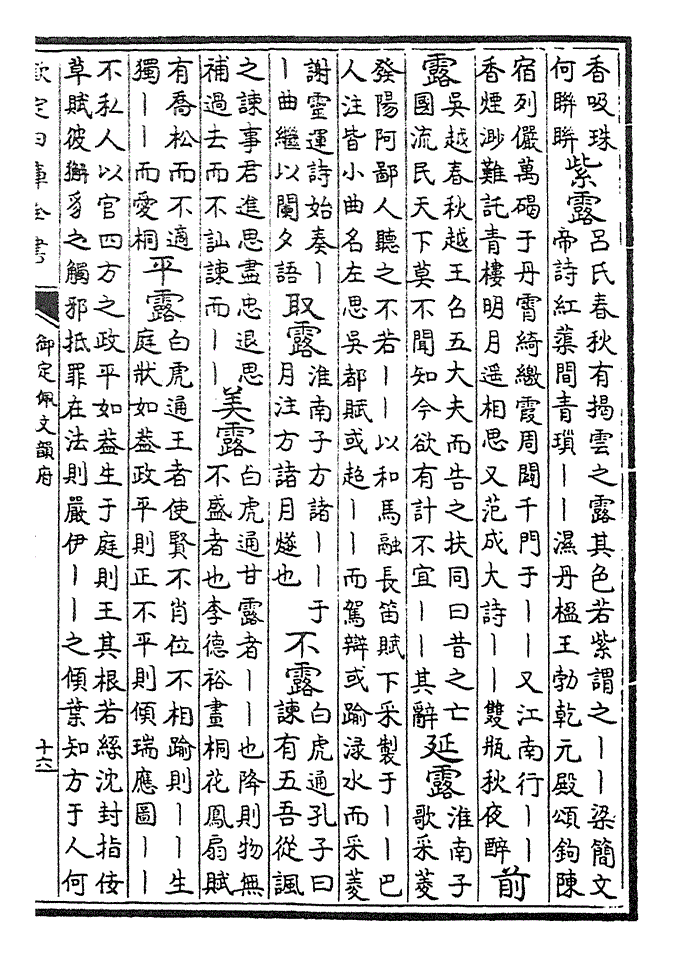 香吸珠
何眸眸
紫露
呂氏春秋有揭雲之露其色若紫謂之丨丨梁簡文
帝詩紅蕖間青瑣丨丨濕丹楹王勃乾元殿頌鉤陳
宿列儼萬碣于丹霄綺繳霞周闢千門于丨丨又江南行丨丨
香煙渺難託青樓明月遥相思又范成大詩丨丨雙瓶秋夜醉
前
露
吳越春秋越王召五大夫而告之扶同曰昔之亡
國流民天下莫不聞知今欲有計不宜丨丨其辭
延露
淮南子
歌采菱
發陽阿鄙人聽之不若丨丨以和馬融長笛賦下采製于丨丨巴
人注皆小曲名左思吳都賦或超丨丨而駕辯或踰渌水而采菱
謝靈運詩始奏丨
丨曲繼以闌夕語
取露
淮南子方諸丨丨于
月注方諸月燧也
不露
白虎通孔子曰
諫有五吾從諷
之諫事君進思盡忠退思
補過去而不訕諫而丨丨
美露
白虎通甘露者丨丨也降則物無
不盛者也李德裕畫桐花鳳扇賦
有喬松而不適
獨丨丨而愛桐
平露
白虎通王者使賢不肖位不相踰則丨丨生
庭狀如葢政平則正不平則傾瑞應圖丨丨
不私人以官四方之政平如葢生于庭則王其根若絲沈封指佞
草賦彼獬豸之觸邪抵罪在法則嚴伊丨丨之傾葉知方于人何
欽定四庫全書
御定佩文韻府
十六